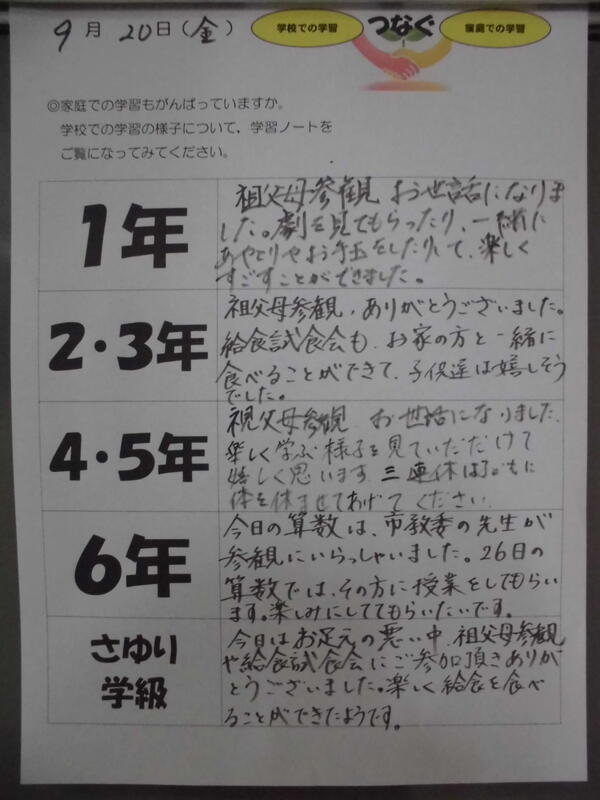 9月20日(金)
学校での学習 つなぐ 家庭での学習
◎家庭での学習もがんばっていますか。
学校での学習の様子について,学習ノートを
ご覧になってみてください。
1年
祖父母参観 お世話になりま
した。劇を見てもらったり、一緒に
あやとりやお手玉をしたりして、楽しく
すごすことができました。
2・3年
祖父母参観,ありがとうございました。
給食試食会も、お家の方と一緒に
食べることができて、子供達は嬉しそう
でした。
4・5年
祖父母参観 お世話になりました
楽しく学ぶ様子を見ていただけて
嬉しく思います 三連休は
体を休ませてあげてください
6年
今日の算数は、市教委の先生が
参観にいらっしゃいました。26日の
算数では、その方に授業をしてもらい
ます。楽しみにしててもらいたいです。
さゆり
学級
今日はお足元の悪い中、祖父母参観
や給食試食会にご参加頂きありが
とうございました。楽しく給食を食べ
ることができたようです。